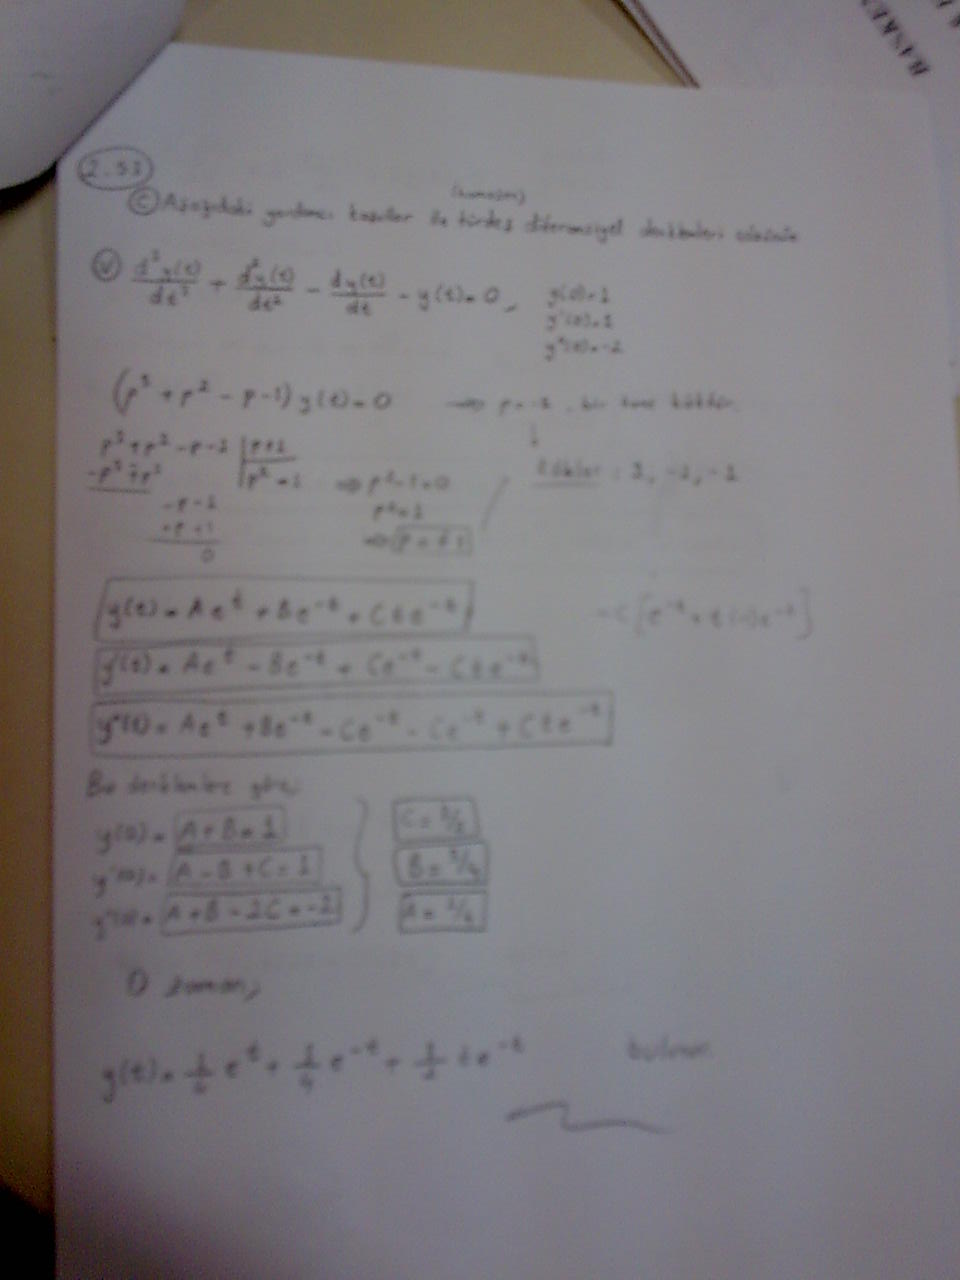 2.53
(homojen)
Ⓒ Aşağıdaki yardımcı koşullar ile türdeş diferansiyel denklemleri çözünüz
Ⓥ d³y(t)/dt³ + d²y(t)/dt² - dy(t)/dt - y(t) = 0, y(0)=1
y'(0)=1
y''(0)=-2
(p³ + p² - p - 1) y(t) = 0 => p = -1, bir tane köktür.
p³ + p² - p - 1 | p+1
-p³ + p² | p² - 1 => p² - 1 = 0 Kökler : 1, -1, -1
-p - 1 p² = 1
+p + 1 => p = ±1
0
y(t) = Ae^t + Be^-t + Cte^-t → C[e^-t + t(-1)e^-t]
y'(t) = Ae^t - Be^-t + Ce^-t - Cte^-t
y''(t) = Ae^t + Be^-t - Ce^-t - Ce^-t + Cte^-t
Bu denklemlere göre;
y(0) = A + B = 1 C = 3/2
y'(0) = A - B + C = 1 B = 3/4
y''(0) = A + B - 2C = -2 A = 1/4
O zaman,
y(t) = e^t + e^-t + te^-t bulunur.